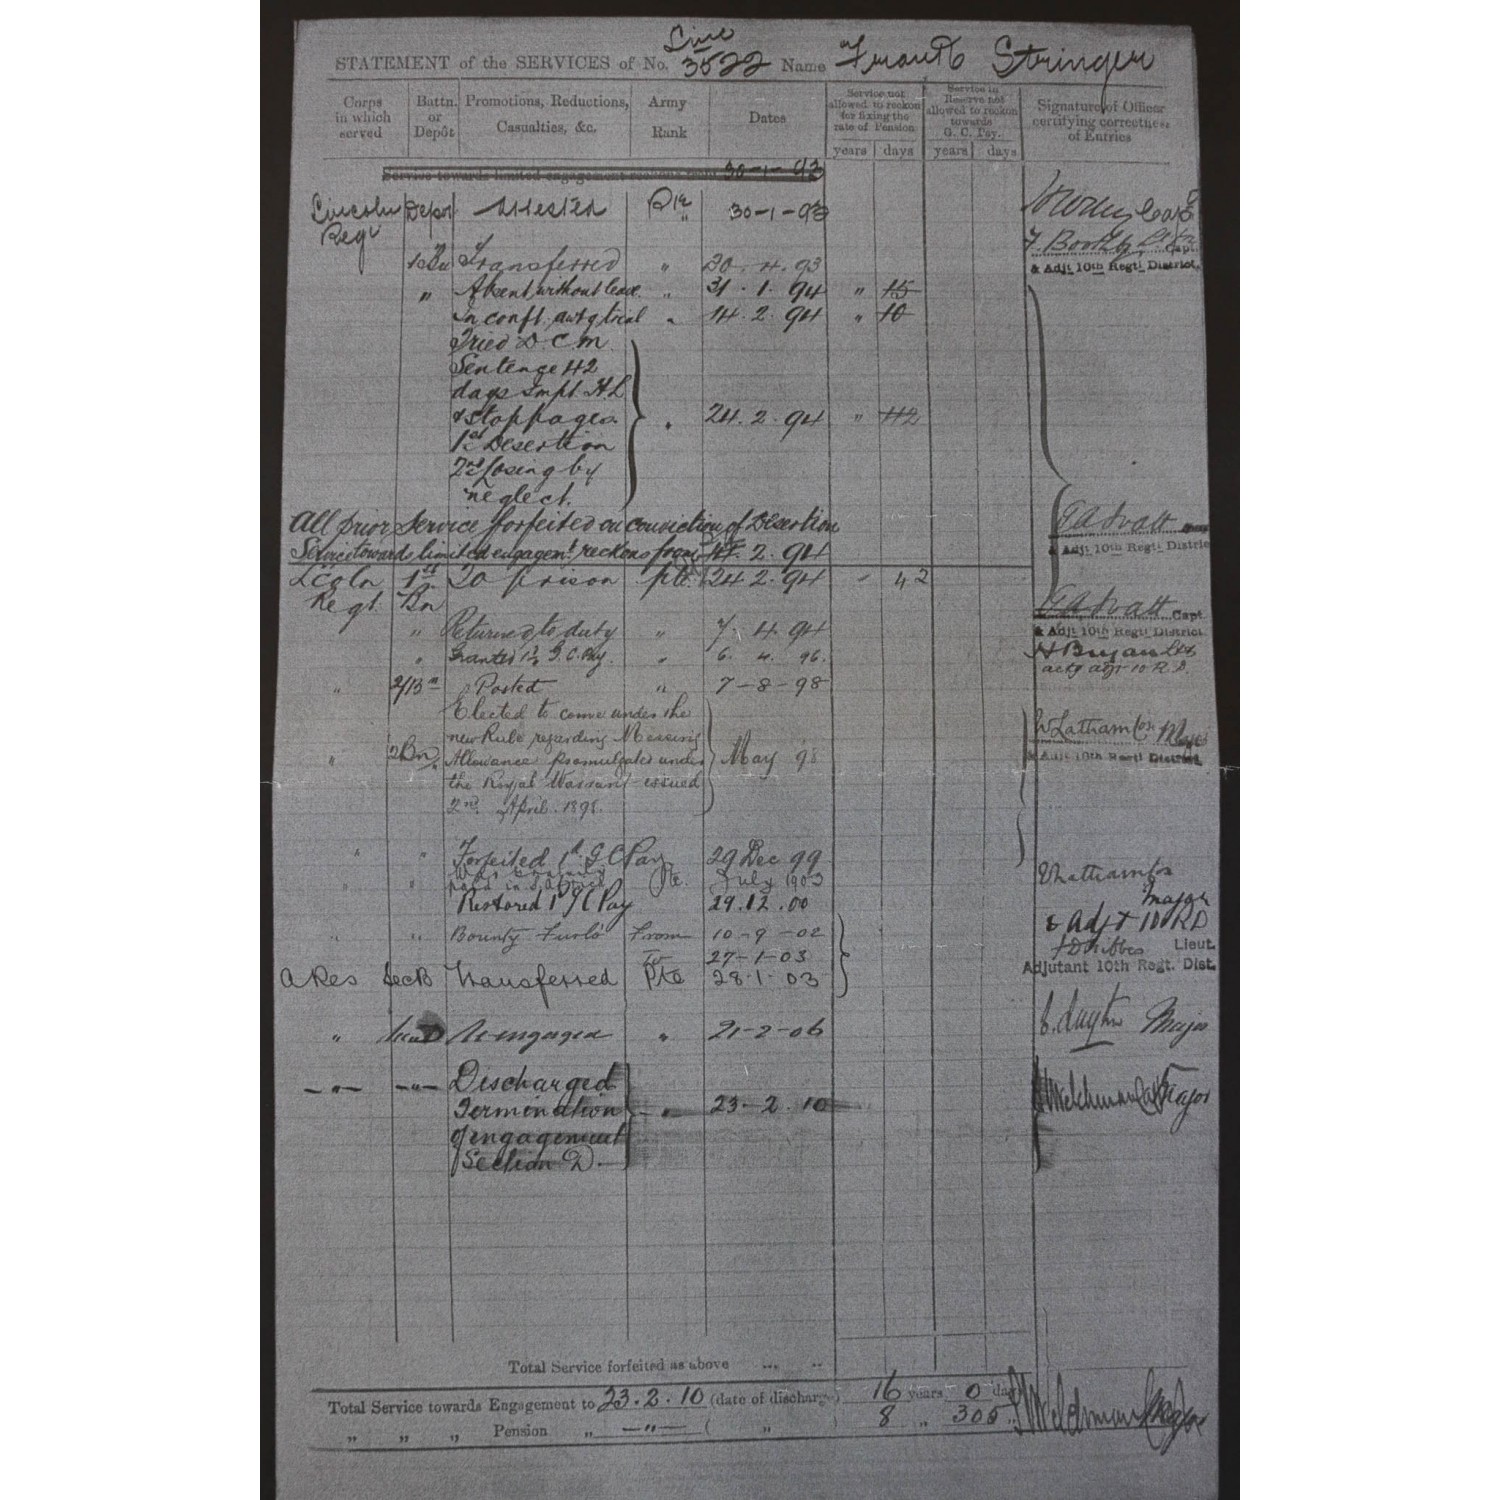 Linc
STATEMENT of the SERVICES of No. 3522 Name Frank Stringer
Corps in which served
Battn. or Depôt
Promotions, Reductions, Casualties, &c.
Army Rank
Dates
Service not allowed to reckon for fixing the rate of Pension
years days
Service in Reserve not allowed to reckon towards G. C. Pay.
years days
Signature of Officer certifying correctness of Entries
Service towards limited engagement reckons from 30-1-93
Lincoln Depot Attested Pte 30-1-93
Regt
F. Boothby Capt.
& Adjt 10th Regtl District.
1st Bn Transferred " 30.4.93
" Absent without leave " 31.1.94 " 15
In conft. awtg trial " 14.2.94 " 10
Tried D.C.M.
Sentence 42
days Impt. H L
& stoppages " 24.2.94 " 42
1st Desertion
2nd losing by
neglect.
All prior Service forfeited on conviction of Desertion
Service towards limited engagemt. reckons from 24.2.94
& Adjt 10th Regtl District
Lcoln 1st To prison pte 24.2.94 " 42
Regt. Bn
Capt
" Returned to duty " 7.4.94
& Adjt 10th Regtl District
" Granted 1st G.C. Pay. " 6.4.96.
actg adjt 10 R.D.
" 2/Bn Posted " 7-8-98
Elected to come under the
new Rule regarding Messing
" 2Bn Allowance promulgated under May 98
the Royal Warrant issued
2nd April. 1898.
W Latham Major
& Adjt 10th Regtl District.
" " Forfeited 1st G C Pay 29 Dec 99
" " paid in Pte. July 1903
Restored 1st G C Pay 29.12.00
Major
& Adjt 10 RD
" " Bounty Furlo' From 10-9-02
To 27-1-03
Lieut.
Adjutant 10th Regt. Dist.
A Res Sec B Transferred Pte 28-1-03
" Re-engaged " 21-2-06
Major
-"- -"- Discharged
Termination -"- 23-2.10
of engagement
Section D.
Welchman Major
Total Service forfeited as above ... ..
Total Service towards Engagement to 23.2.10 (date of discharge) 16 years 0 days
" " " Pension " -"- ( " ) 8 " 305 "
Welchman Major